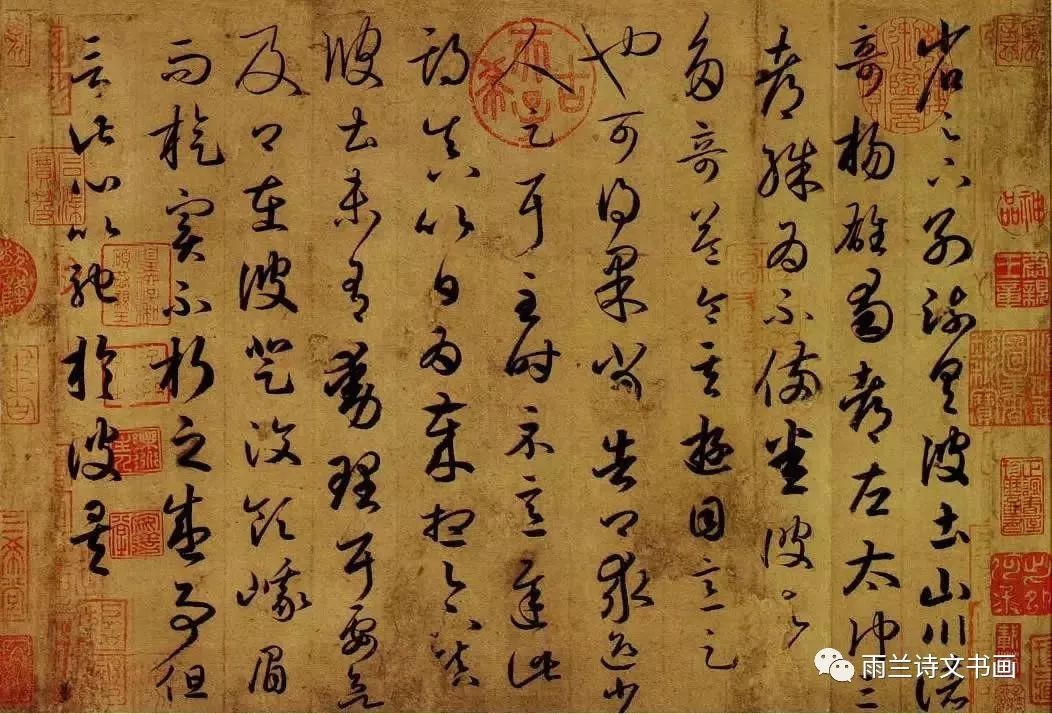 省足下別疏具彼土山川諸
奇楊雄蜀都左太沖三
都殊為不備悉彼故為
多奇益令其遊目意足
也可得果當告卿求迎少
人足耳至時示意遲此
期真以日為歲想足下鎮
彼土未有動理耳要欲
及卿在彼登汶領峨眉
而旋實不朽之盛事但
言此心以馳於彼矣
古希天子
神品
雨兰诗文书画